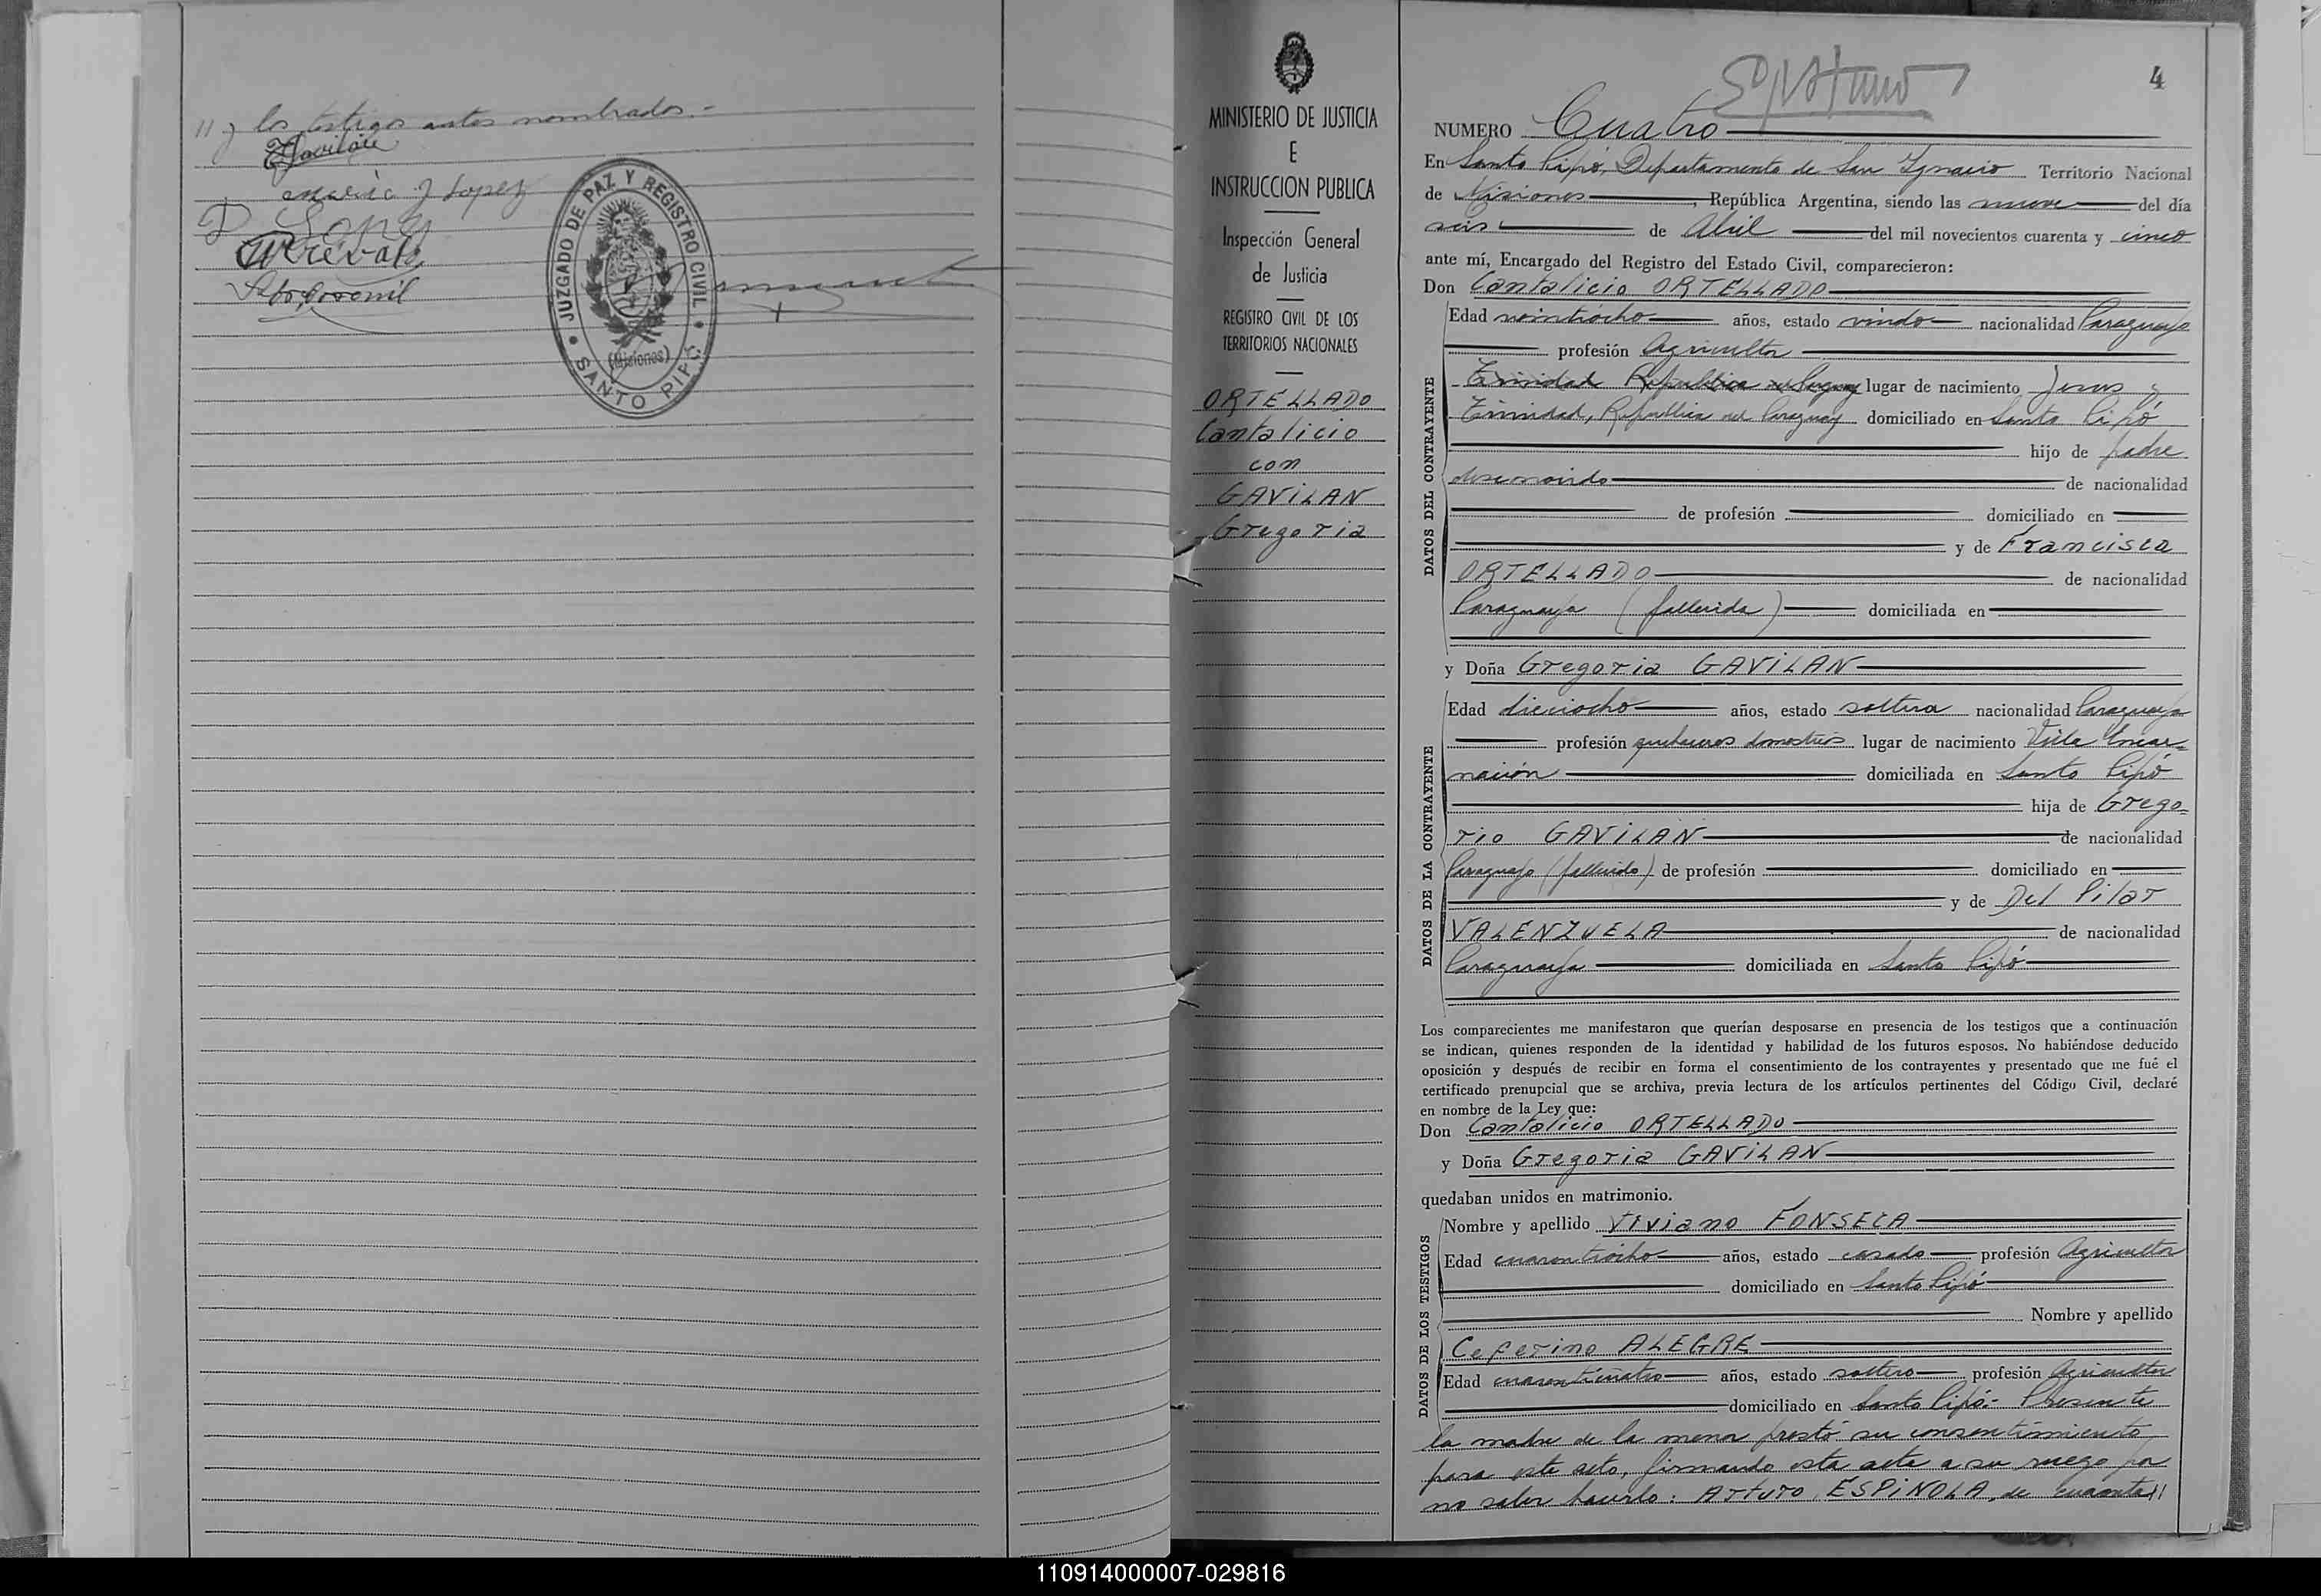 // y los testigos antes nombrados.-
E Gavilan
maria J Lopez
JUZGADO DE PAZ Y REGISTRO CIVIL
(Misiones)
SANTO PIPÓ
MINISTERIO DE JUSTICIA
E
INSTRUCCION PUBLICA
Inspección General
de Justicia
REGISTRO CIVIL DE LOS
TERRITORIOS NACIONALES
ORTELLADO
Cantalicio
con
GAVILAN
Gregoria
4
NUMERO Cuatro
En Santo Pipó, Departamento de San Ignacio Territorio Nacional
de Misiones, República Argentina, siendo las nueve del día
seis de Abril del mil novecientos cuarenta y cinco
ante mí, Encargado del Registro del Estado Civil, comparecieron:
Don Cantalicio ORTELLADO
DATOS DEL CONTRAYENTE
Edad veintiocho años, estado viudo nacionalidad Paraguayo
profesión Agricultor
Trinidad República del Paraguay lugar de nacimiento Jesus y
Trinidad, República del Paraguay domiciliado en Santo Pipó
hijo de padre
desconocido de nacionalidad
de profesión domiciliado en
y de Francisca
ORTELLADO de nacionalidad
Paraguaya (fallecida) domiciliada en
y Doña Gregoria GAVILAN
DATOS DE LA CONTRAYENTE
Edad dieciocho años, estado soltera nacionalidad Paraguaya
profesión quehaceres domesticos lugar de nacimiento Villa Encar=
nación domiciliada en Santo Pipó
hija de Grego=
rio GAVILAN de nacionalidad
Paraguayo (fallecido) de profesión domiciliado en
y de Del Pilar
VALENZUELA de nacionalidad
Paraguaya domiciliada en Santo Pipó
Los comparecientes me manifestaron que querían desposarse en presencia de los testigos que a continuación
se indican, quienes responden de la identidad y habilidad de los futuros esposos. No habiéndose deducido
oposición y después de recibir en forma el consentimiento de los contrayentes y presentado que me fué el
certificado prenupcial que se archiva, previa lectura de los artículos pertinentes del Código Civil, declaré
en nombre de la Ley que:
Don Cantalicio ORTELLADO
y Doña Gregoria GAVILAN
quedaban unidos en matrimonio.
DATOS DE LOS TESTIGOS
Nombre y apellido Viviano FONSECA
Edad cuarentiocho años, estado casado profesión Agricultor
domiciliado en Santo Pipó
Nombre y apellido
Ceferino ALEGRE
Edad cuarenticuatro años, estado soltero profesión Agricultor
domiciliado en Santo Pipó.- Presente
la madre de la menor prestó su consentimiento
para este acto, firmando esta acta a su ruego por
no saber hacerlo: Arturo ESPINOLA, de cuarenta//
110914000007-029816